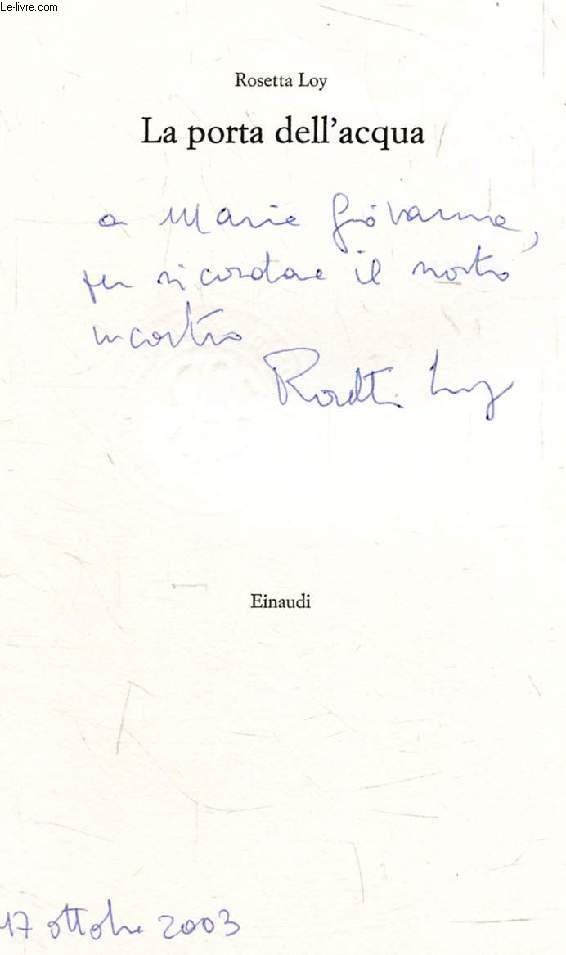 Le-livre.com
Rosetta Loy
La porta dell'acqua
a Maria Giovanna,
per ricordare il nostro
incontro
Rosetta Loy
Einaudi
17 ottobre 2003